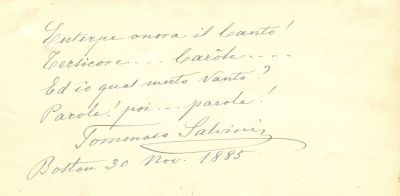 Euterpe onora il Canto!
Tersicore... Carôle....
Ed io qual merto vanto?
Parole! poi... parole!
Tommaso Salvini
Boston 30 Nov. 1885.